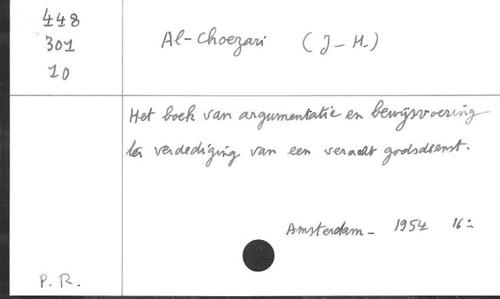 448
301
10
Al-Choezari (J-H.)
Het boek van argumentatie en bewijsvoering
ter verdediging van een veracht godsdienst.
Amsterdam - 1954 16=
P. R.